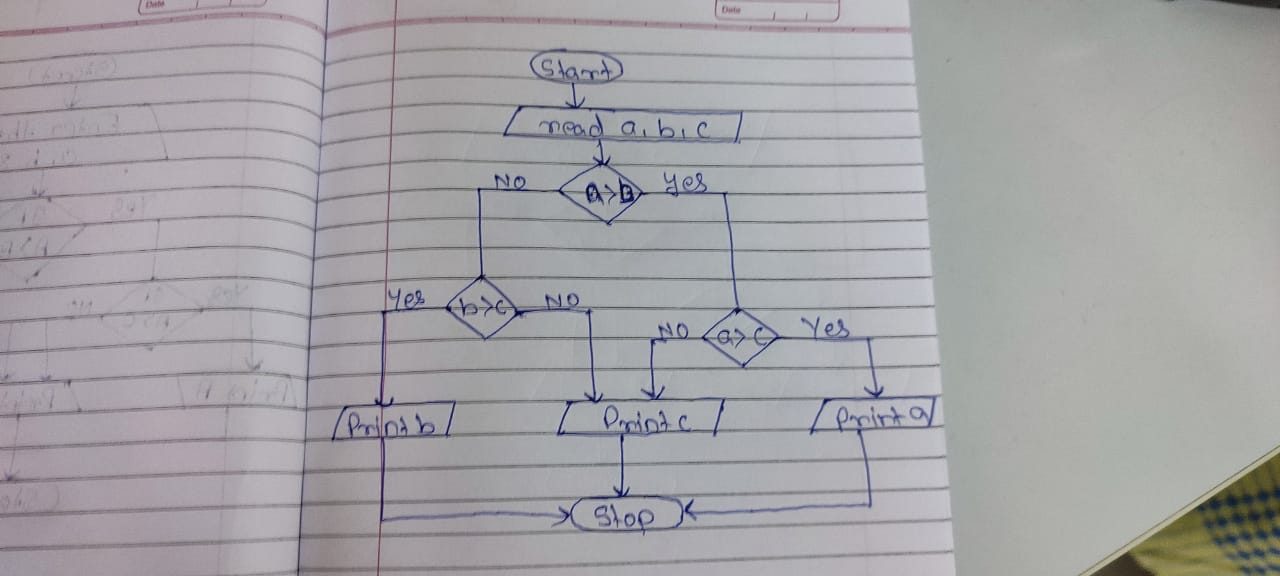 Date
Date
Start
read a, b, c
NO a>b Yes
Yes b>c NO
NO a>c Yes
Print b Print c Print a
Stop